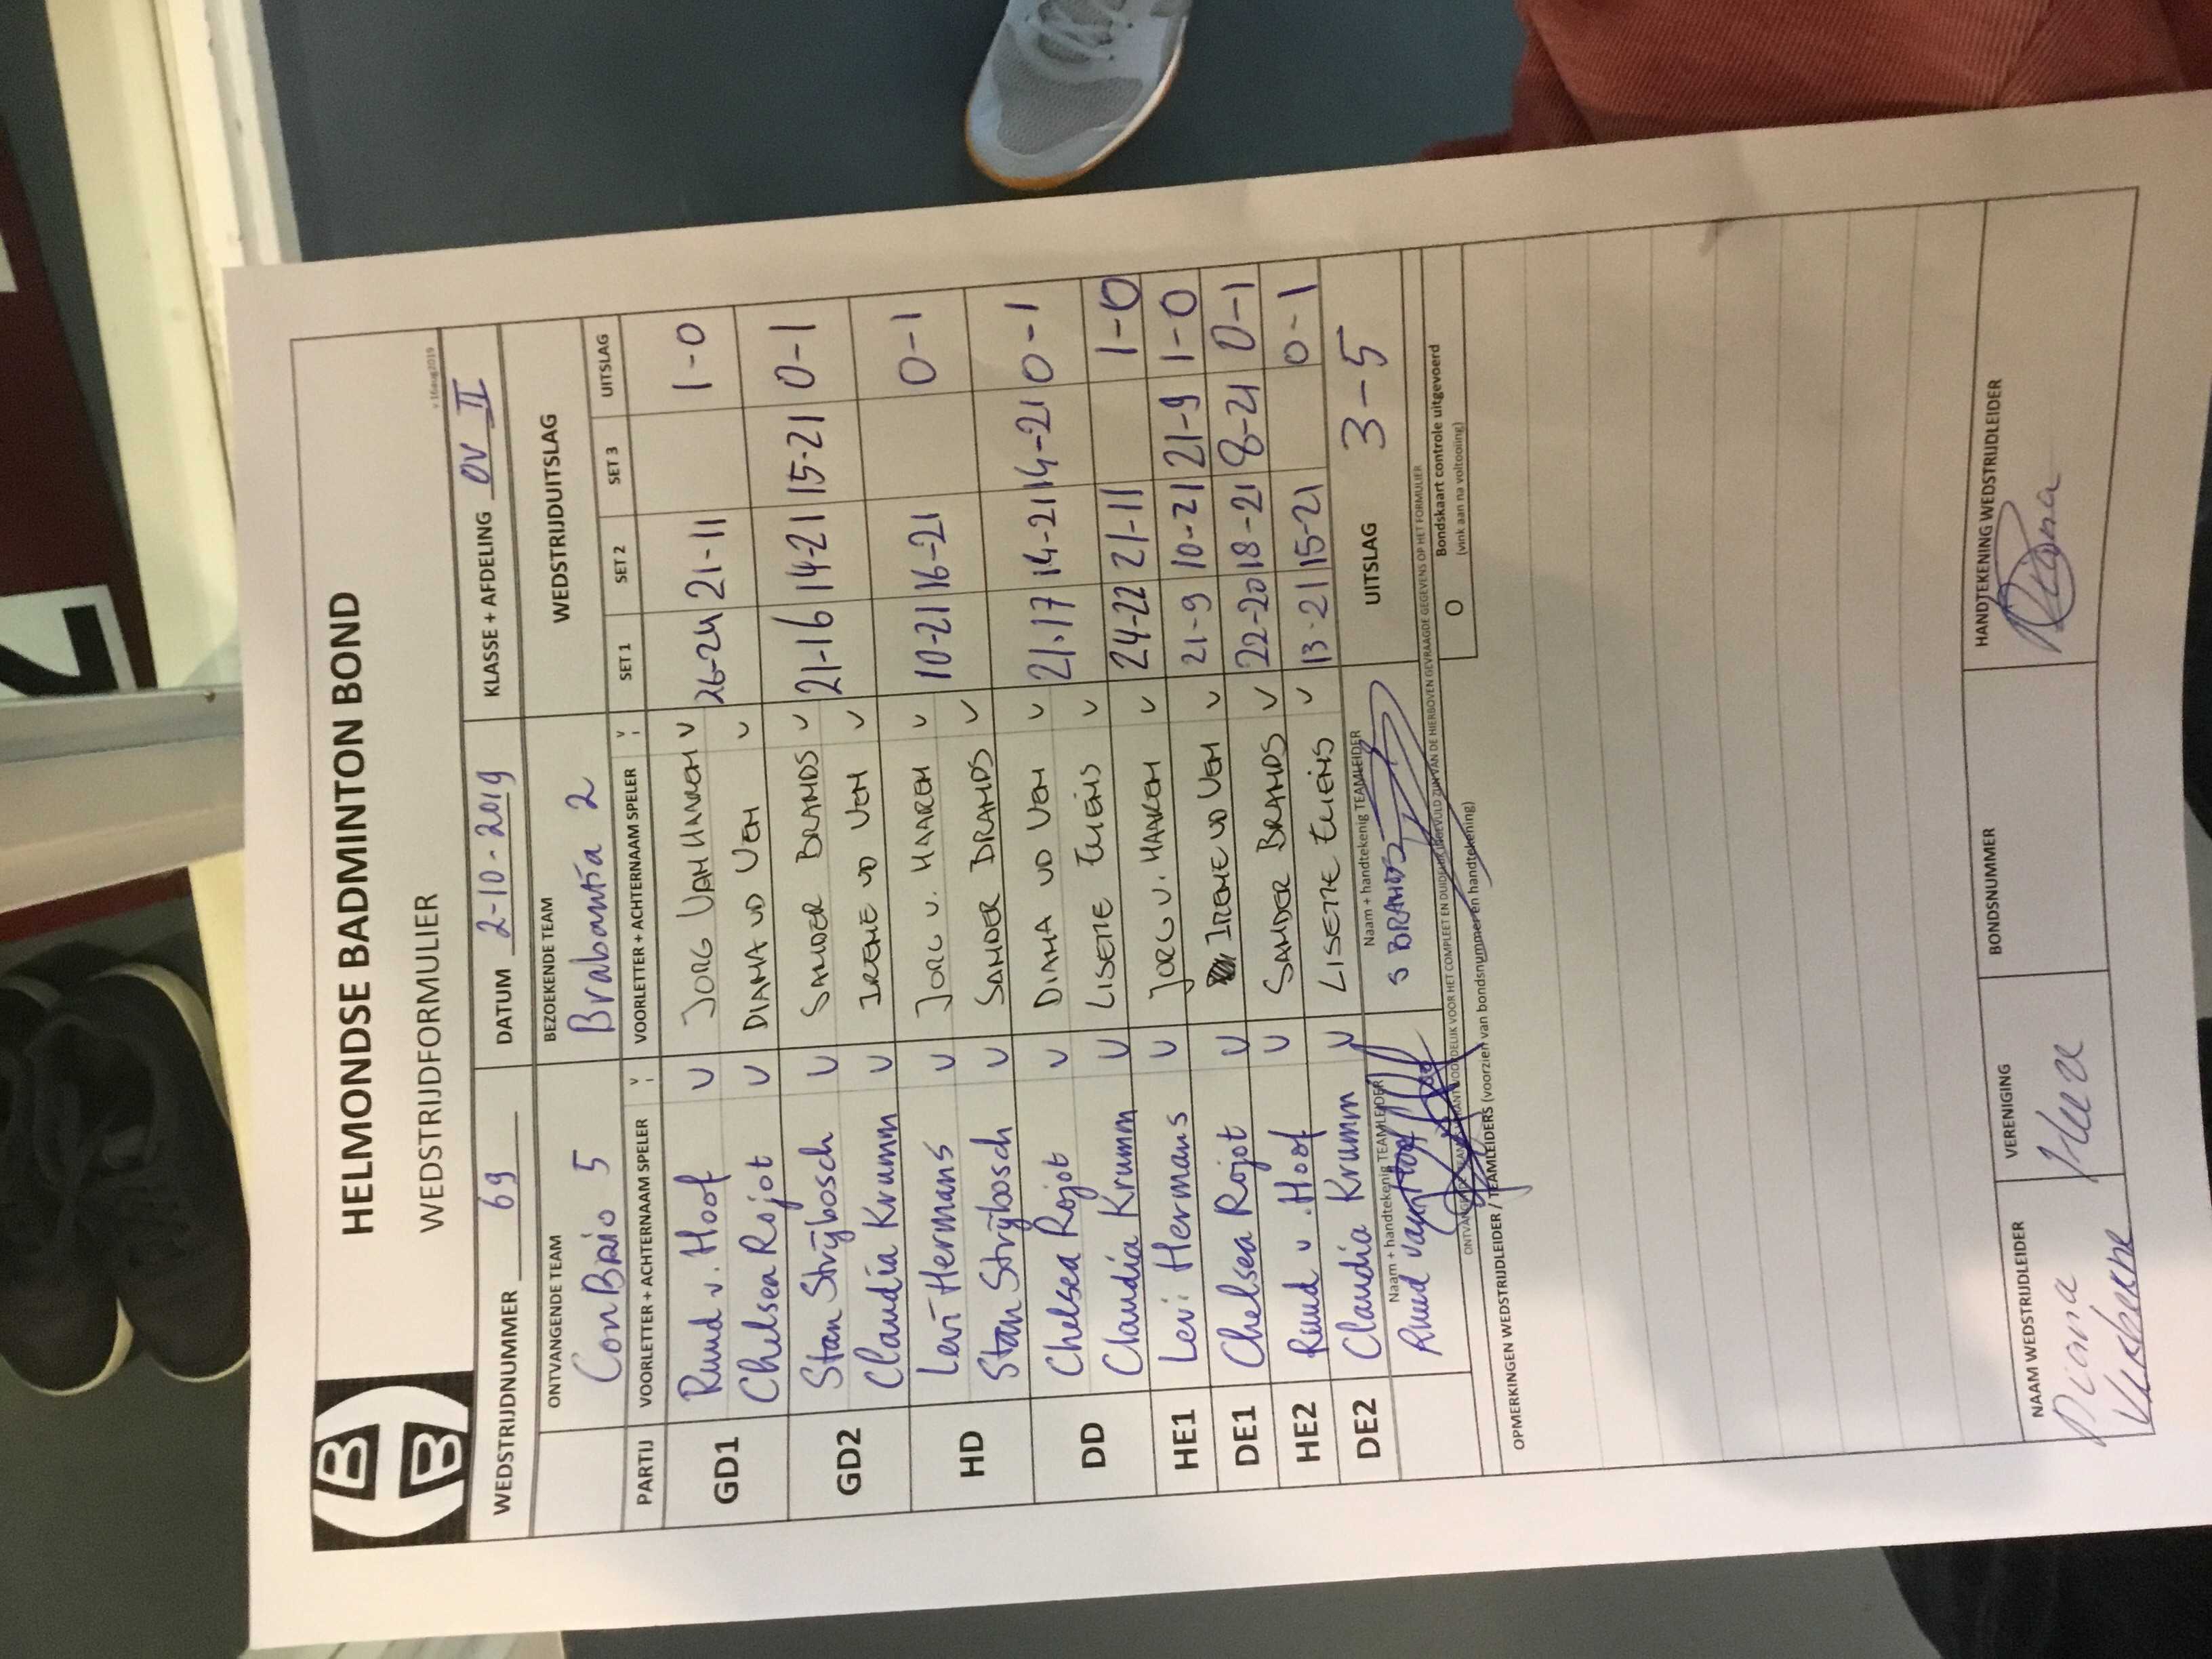 HELMONDSE BADMINTON BOND
WEDSTRIJDFORMULIER
v 16aug2019
WEDSTRIJDNUMMER 69 DATUM 2-10-2019 KLASSE + AFDELING OV II
ONTVANGENDE TEAM BEZOEKENDE TEAM WEDSTRIJDUITSLAG
ConBrio 5 Brabantia 2
PARTIJ VOORLETTER + ACHTERNAAM SPELER V VOORLETTER + ACHTERNAAM SPELER V SET 1 SET 2 SET 3 UITSLAG
GD1 Ruud v. Hoof V JORG VAN HAAREN V 26-24 21-11 1-0
Chelsea Rojot V DIANA VD VEN V
GD2 Stan Strijbosch V SANDER BRANDS V 21-16 14-21 15-21 0-1
Claudia Krumm V IRENE VD VEN V
HD Levi Hermans V JORG V. HAAREN V 10-21 16-21 0-1
Stan Strijbosch V SANDER BRANDS V
DD Chelsea Rojot V DIANA VD VEN V 21-17 14-21 14-21 0-1
Claudia Krumm V LISETTE ELIENS V 
HE1 Levi Hermans V JORG V. HAAREN V 24-22 21-11 1-0
DE1 Chelsea Rojot V IRENE VD VEN V 21-9 10-21 21-9 1-0
HE2 Ruud v. Hoof V SANDER BRANDS V 22-20 18-21 8-21 0-1
DE2 Claudia Krumm V LISETTE ELIENS V 13-21 15-21 0-1
Naam + handtekenig TEAMLEIDER Naam + handtekenig TEAMLEIDER UITSLAG 3-5
Ruud van Hoof S BRANDS
ONTVANGENDE TEAM IS VERANTWOORDELIJK VOOR HET COMPLEET EN DUIDELIJK INGEVULD ZIJN VAN DE HIERBOVEN GEVRAAGDE GEGEVENS OP HET FORMULIER
OPMERKINGEN WEDSTRIJDLEIDER / TEAMLEIDERS (voorzien van bondsnummer en handtekening)
O Bondskaart controle uitgevoerd
(vink aan na voltooiing)
NAAM WEDSTRIJDLEIDER VERENIGING BONDSNUMMER HANDTEKENING WEDSTRIJDLEIDER
Diana